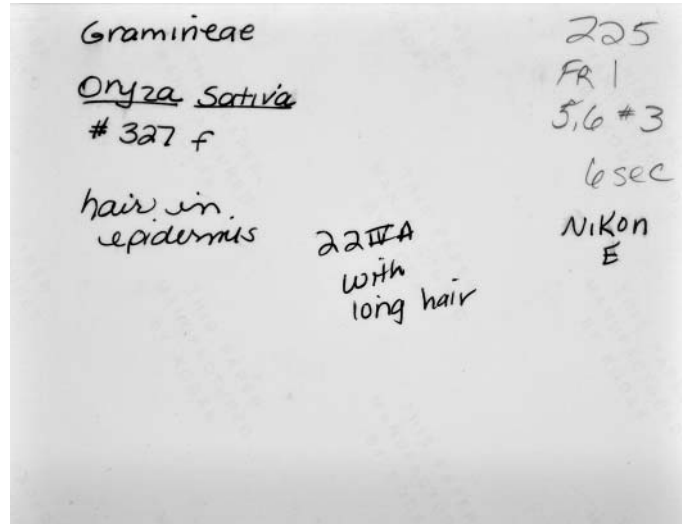 Gramineae
Oryza Sativa
# 327 f
hair in
epidermis
22 IV A
with
long hair
225
FR 1
5,6 #3
6 sec
Nikon
E